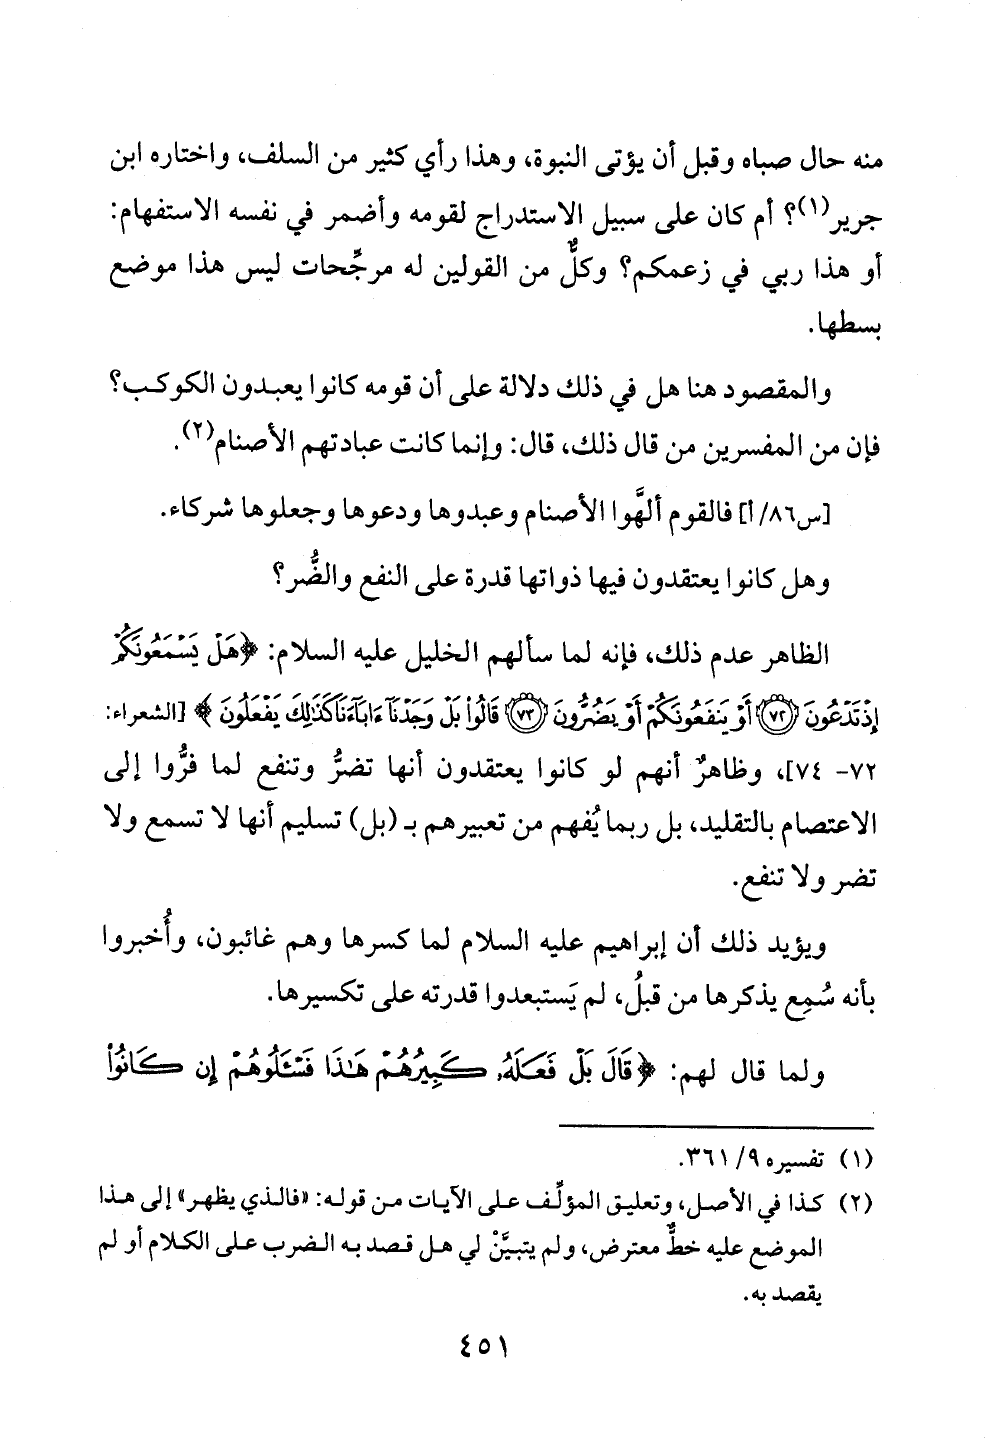 منه حال صباه وقبل أن يؤتى النبوة، وهذا رأي كثير من السلف، واختاره ابن
جرير(١)؟ أم كان على سبيل الاستدراج لقومه وأضمر في نفسه الاستفهام:
أو هذا ربي في زعمكم؟ وكلٌّ من القولين له مرجِّحات ليس هذا موضع
بسطها.
والمقصود هنا هل في ذلك دلالة على أن قومه كانوا يعبدون الكوكب؟
فإن من المفسرين من قال ذلك، قال: وإنما كانت عبادتهم الأصنام(٢).
[س٨٦/أ] فالقوم ألَّهوا الأصنام وعبدوها ودعوها وجعلوها شركاء.
وهل كانوا يعتقدون فيها ذواتها قدرة على النفع والضُّر؟
الظاهر عدم ذلك، فإنه لما سألهم الخليل عليه السلام: ﴿هَلْ يَسْمَعُونَكُمْ
إِذْ تَدْعُونَ ﴿٧٢﴾ أَوْ يَنفَعُونَكُمْ أَوْ يَضُرُّونَ ﴿٧٣﴾ قَالُوا۟ بَلْ وَجَدْنَآ ءَابَآءَنَا كَذَٰلِكَ يَفْعَلُونَ﴾ [الشعراء:
٧٢- ٧٤]، وظاهرٌ أنهم لو كانوا يعتقدون أنها تضرُّ وتنفع لما فرُّوا إلى
الاعتصام بالتقليد، بل ربما يُفهم من تعبيرهم بـ (بل) تسليم أنها لا تسمع ولا
تضر ولا تنفع.
ويؤيد ذلك أن إبراهيم عليه السلام لما كسرها وهم غائبون، وأُخبروا
بأنه سُمِع يذكرها من قبلُ، لم يَستبعدوا قدرته على تكسيرها.
ولما قال لهم: ﴿قَالَ بَلْ فَعَلَهُۥ كَبِيرُهُمْ هَٰذَا فَسْـَٔلُوهُمْ إِن كَانُوا۟
(١) تفسيره ٩/ ٣٦١.
(٢) كذا في الأصل، وتعليق المؤلِّف على الآيات من قوله: «فالذي يظهر» إلى هذا
الموضع عليه خطٌّ معترض، ولم يتبيَّنْ لي هل قصد به الضرب على الكلام أو لم
يقصد به.
٤٥١